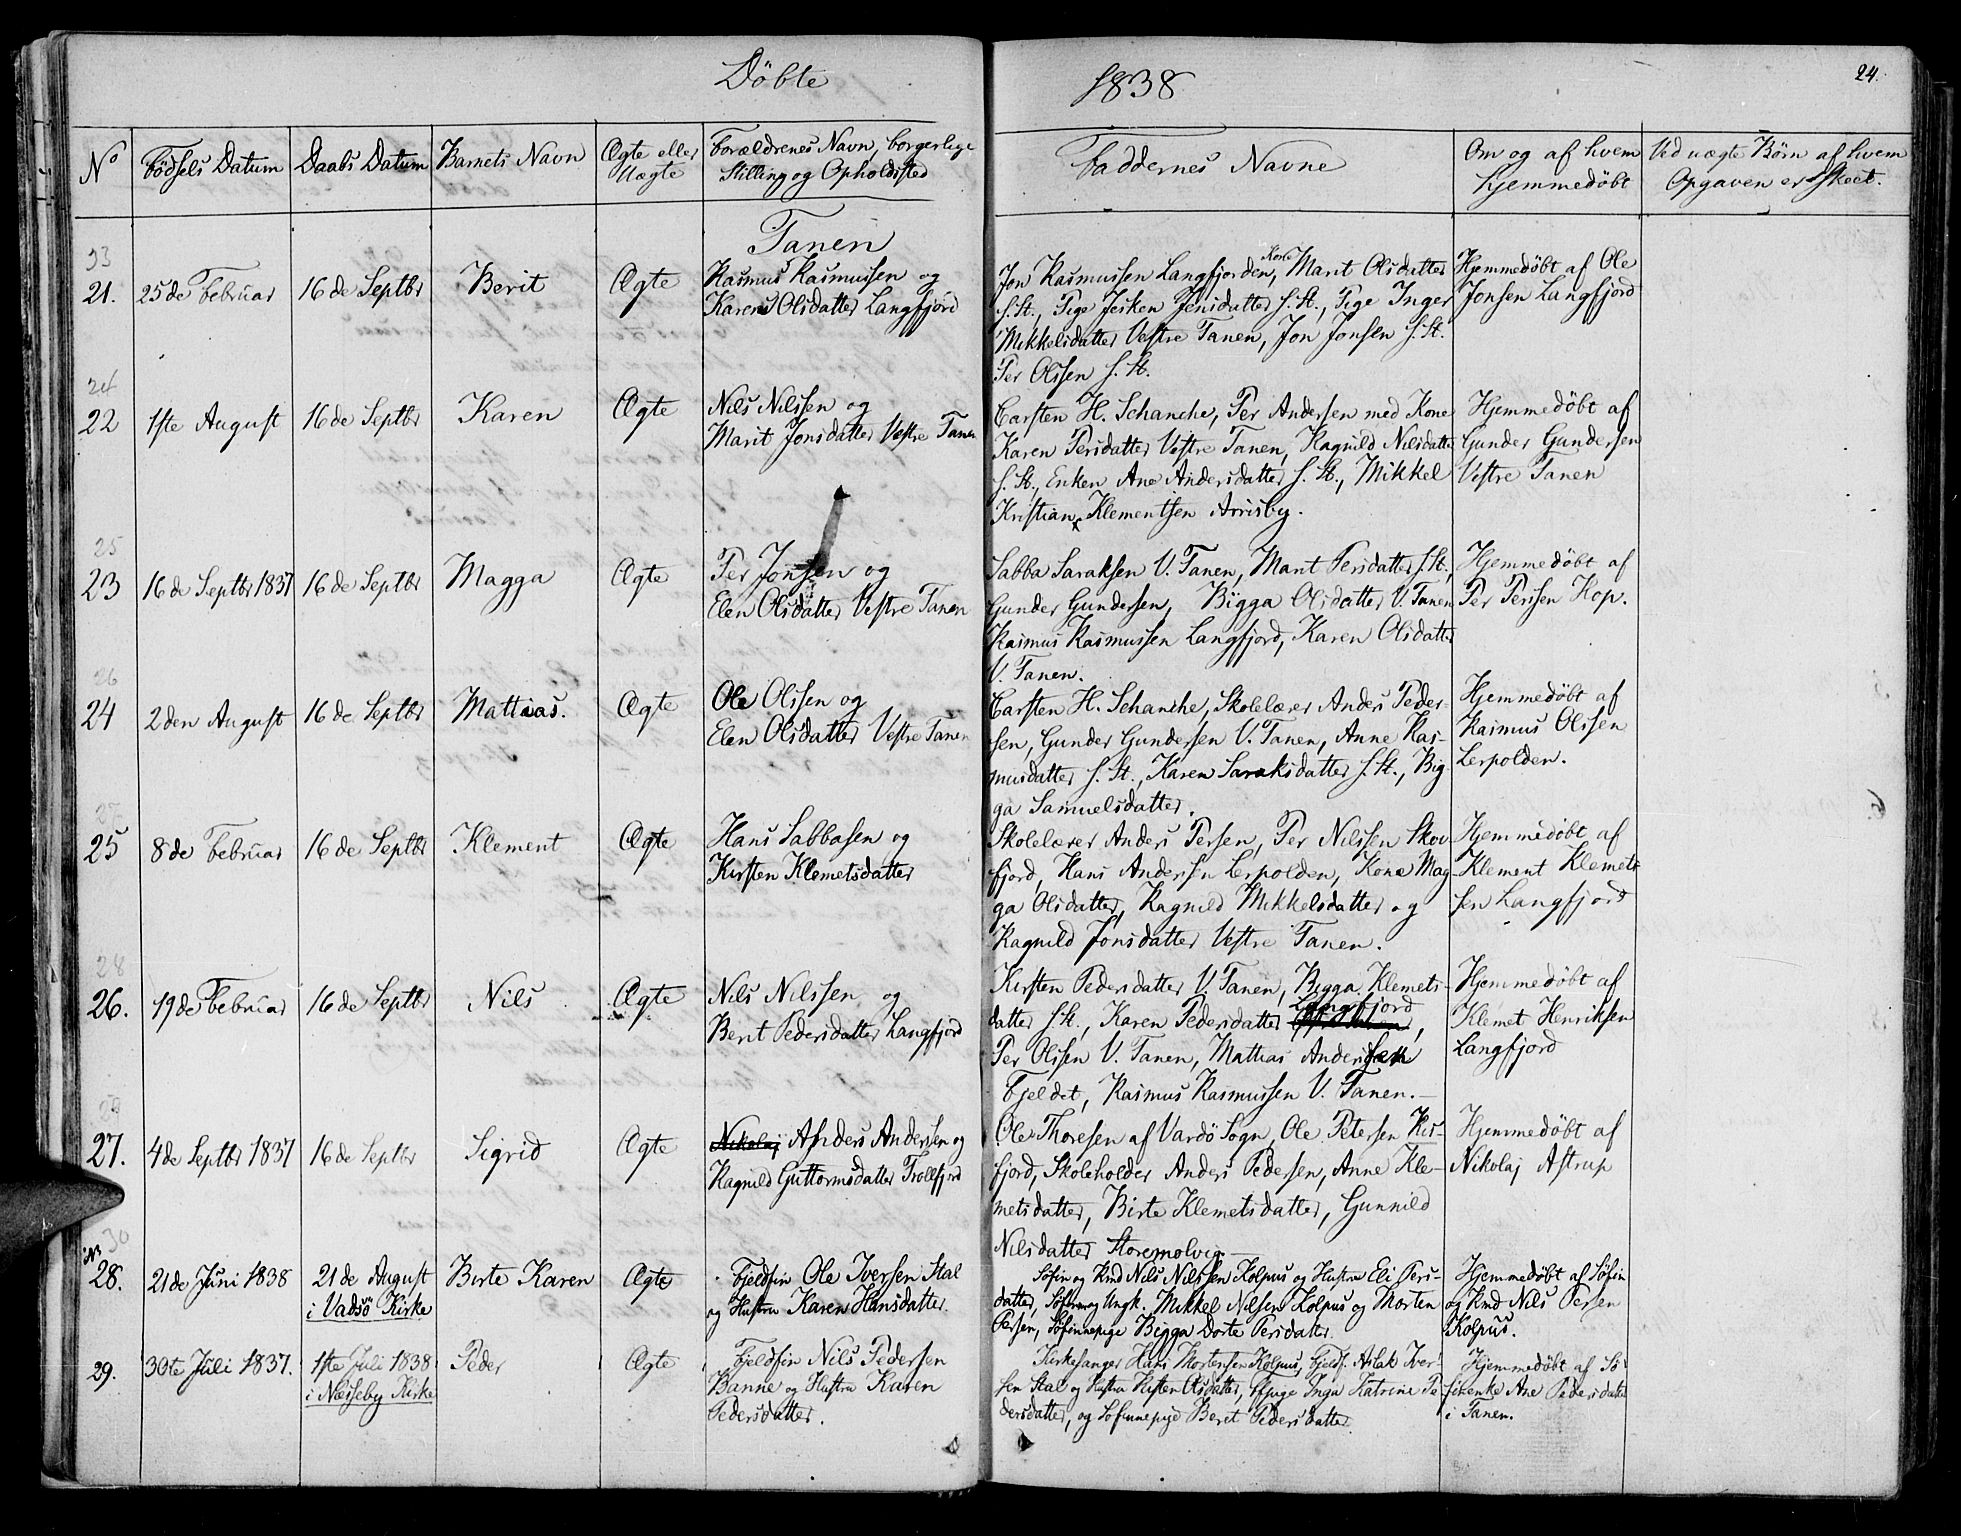 Döbte 1838
24.
No
Födsels Datum
Daabs Datum
Barnets Navn
Ægte eller
Uægte
Forældrenes Navn, borgerlige
Stilling og Opholdsted
Faddernes Navne
Om og af hvem
hjemmedöbt
Ved uægte Börn af hvem
Opgaven er skeet.
Tanen
21.
25de Februar
16de Septbr
Berit
Ægte
Rasmus Rasmussen og
Karen Olsdatter Langfjord
Jon Rasmussen Langfjorden, Kone Marit Olsdatter
s. St., Pige Jesken Jensdatter s. St., Pige Inger
Mikkelsdatter Vestre Tanen, Jon Jonsen s. St.
Per Olssen s. St.
Hjemmedöbt af Ole
Jonsen Langfjord
24
22
1ste August
16de Septbr
Karen
Ægte
Nils Nilssen og
Marit Jonsdatter Vestre Tanen
Carsten H. Schanche, Per Andersen med Kone
Karen Persdatter Vestre Tanen, Ragnild Nilsdatter
s. St., Enken Ane Andersdatter s. St., Mikkel
Kristian Klementsen Arrisby.
Hjemmedöbt af
Gunder Gundersen
Vestre Tanen
25
23
16de Septbr 1837
16de Septbr
Magga
Ægte
Per Jonsen og
Elen Olsdatter Vestre Tanen
Sabba Saraksen V. Tanen, Marit Persdatter s. St.,
Gunder Gundersen, Bigga Olsdatter V. Tanen
Rasmus Rasmussen Langfjord, Karen Olsdatter
V. Tanen.
Hjemmedöbt af
Per Perssen Hop.
26
24
2den August
16de Septbr
Mattias.
Ægte
Ole Olssen og
Elen Olsdatter Vestre Tanen
Carsten H. Schanche, Skolelærer Anders Peder-
sen, Gunder Gundersen V. Tanen, Anne Ras-
musdatter s. St., Karen Saraksdatter s. St., Big-
ga Samuelsdatter.
Hjemmedöbt af
Rasmus Olssen
Lerpolden.
27
25
8de Februar
16de Septbr
Klement
Ægte
Hans Sabbasen og
Kirsten Klemetsdatter
Skolelærer Anders Persen, Per Nilssen Skov-
fjord, Hans Andersen Lerpolden, Kone Mag-
ga Olsdatter, Ragnild Mikkelsdatter og
Ragnild Jonsdatter Vestre Tanen.
Hjemmedöbt af
Klement Klemet-
sen Langfjord
28
26.
19de Februar
16de Septbr
Nils
Ægte
Nils Nilssen og
Berit Pedersdatter Langfjord
Kirsten Pedersdatter V. Tanen, Bigga Klemets-
datter s. St., Karen Pedersdatter Langfjord,
Per Olssen V. Tanen, Mattias Andersen
Fjeldet, Rasmus Rasmussen V. Tanen.
Hjemmedöbt af
Klemet Henriksen
Langfjord
29
27.
4de Septbr 1837
16de Septbr
Sigrid
Ægte
Nikolaj Anders Andersen og
Ragnild Guttormsdatter Trollfjord
Ole Thoresen af Vardö Sogn, Ole Petersen
fjord, Skoleholder Anders Pedersen, Anne Kle-
metsdatter, Birte Klemetsdatter, Gunnild
Nilsdatter Storemolvig.
Hjemmedöbt af
Nikolaj Astrup
30
28.
21de Juni 1838
21de August
i Vadsö Kirke
Birte Karen
Ægte
Fjeldfin Ole Iversen Stal
og Hustru Karen Hansdatter.
Söfin og Kmd Nils Nilssen Kolpus og Hustru Eli Pers-
datter, Söfin og Ungk. Mikkel Nilsen Kolpus og Morten
Persen, Söfinnepige Bigga Dorte Persdatter.
Hjemmedöbt af Söfin
og Kmd Nils Persen
Kolpus.
29.
30te Juli 1837.
1ste Juli 1838
i Næsseby Kirke
Peder
Ægte
Fjeldfin Nils Pedersen
Banne og Hustru Karen
Pedersdatter.
Kirkesanger Hans Mortensen Kolpus, Fjeldf. Aslak Iver-
sen Stal og Hustru Olsdatter, Inga Katrine Pe-
dersdatter, og Söfinnepige Beret Pedersdatter.
Hjemmedöbt af Sö-
finenke Ane Pedersdatter
i Tanen.